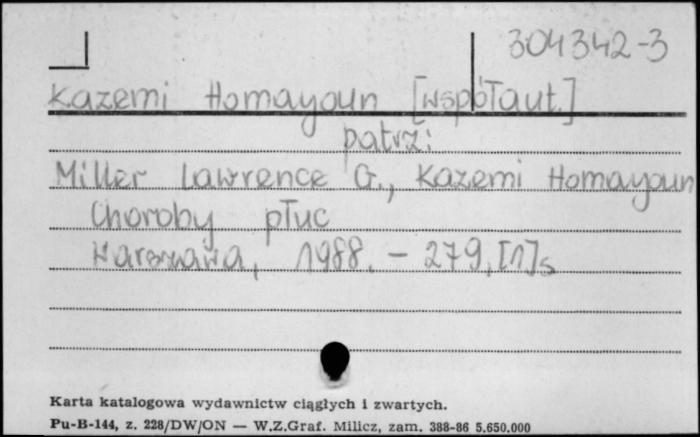 304342-3
Kazemi Homayoun [współaut.]
patrz:
Miller Lawrence G., Kazemi Homayoun
Choroby płuc
Warszawa, 1988. – 279, [1] s
Karta katalogowa wydawnictw ciągłych i zwartych.
Pu-B-144, z. 228/DW/ON — W.Z.Graf. Milicz, zam. 388-86 5.650.000